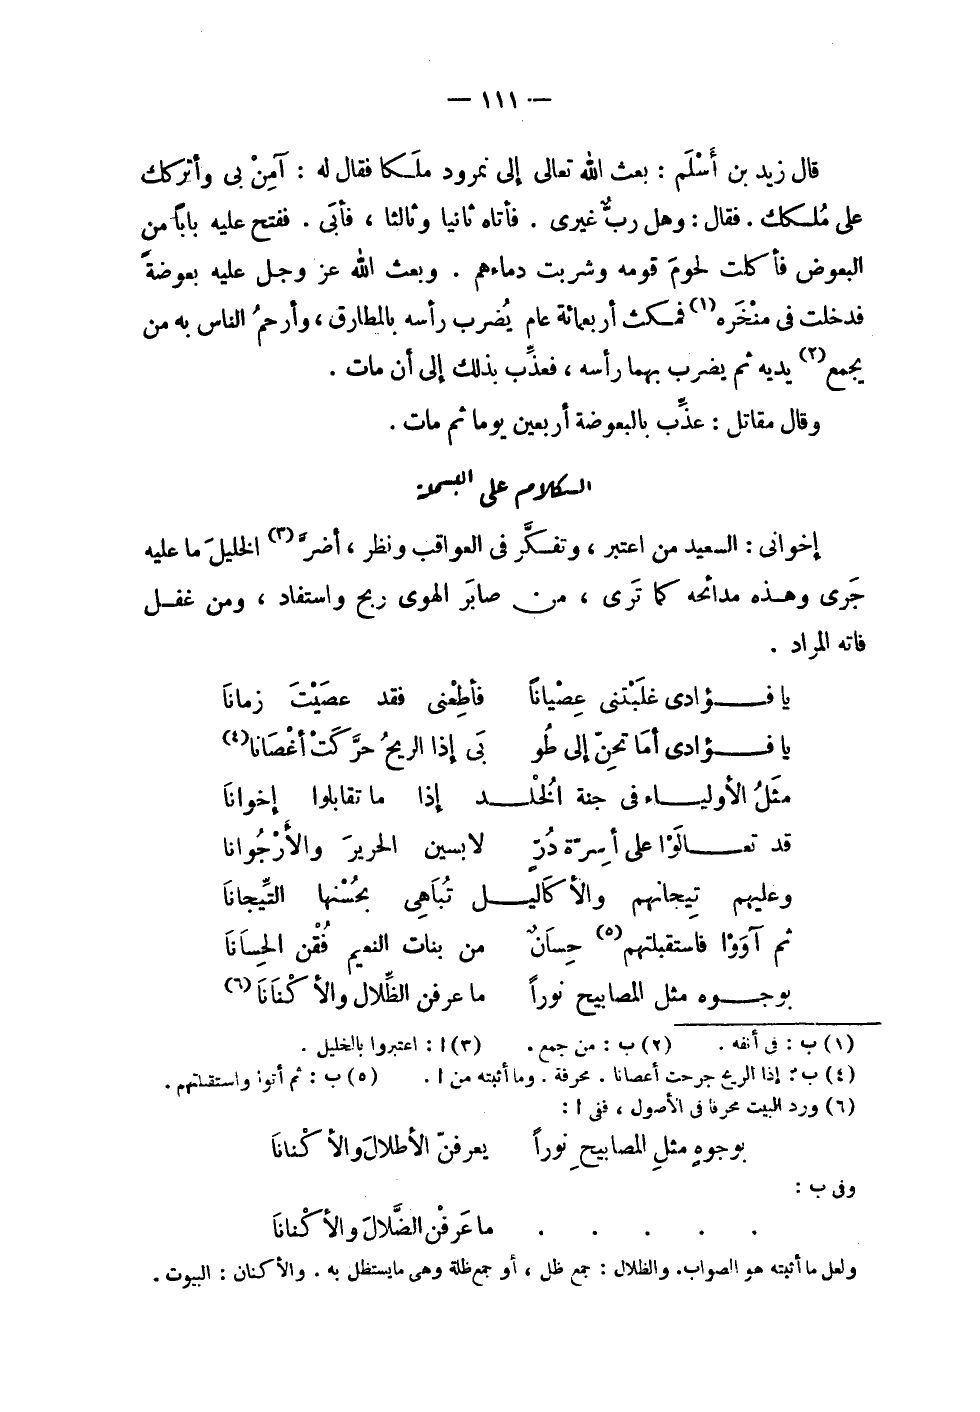 — ١١١ —
قال زيد بن أَسْلَم : بعث الله تعالى إلى نمرود ملَكا فقال له : آمِنْ بى وأتركك
على مُلكك . فقال : وهل ربٌّ غيرى . فأتاه ثانيا وثالثا ، فأبَى . ففتح عليه باباً من
البعوض فأكلت لحومَ قومه وشربت دماءهم . وبعث الله عز وجل عليه بعوضةً
فدخلت فى منْخَره(١) فمكث أربعمائة عام يُضرب رأسه بالمطارق ، وأرحمُ الناس به من
يجمع(٢) يديه ثم يضرب بهما رأسه ، فعذِّب بذلك إلى أن مات .
وقال مقاتل : عذِّب بالبعوضة أربعين يوما ثم مات .
الكلام على البسملة
إخوانى : السعيد من اعتبر ، وتفكَّر فى العواقب ونظر ، أضرَّ(٣) الخليلَ ما عليه
جَرى وهذه مدائحه كما تَرى ، من صابَر الهوى ربح واستفاد ، ومن غفل
فاته المراد .
يا فؤادى غلَبْتنى عِصْياناً فأطِعْنى فقد عصَيْتَ زمانَا
يا فؤادى أمَا تحنّ إلى طُو بَى إذا الريحُ حرَّكَتْ أغْصَانا(٤)
مثَلُ الأولياء فى جنة الخُلْد إذا ما تقابلوا إخوانَا
قد تعالَوْا على أسِرّة دُرٍّ لابسين الحريرَ والأُرْجُوانا
وعليهم تِيجانهم والأكَاليل تُبَاهِى بحُسْنها التِّيجانَا
ثم آوَوْا فاستقبلتهم(٥) حِسَانٌ من بنات النعيم فُقْن الحِسَانَا
بوجوه مثل المصابيح نوراً ما عرفن الظِّلال والأكْنَانَا(٦)
(١) ب : فى أنفه . (٢) ب : من جمع . (٣) ا : اعتبروا بالخليل .
(٤) ب : إذا الريح جرحت أعصانا . محرفة . وما أثبته من ا . (٥) ب : ثم أتوا واستقبلتهم .
(٦) ورد البيت محرفا فى الأصول ، ففى ا :
بوجوهٍ مثلِ المصابيحِ نوراً يعرفنّ الأطلالَ والأكْنانَا
وفى ب :
. . . . . ما عَرفْن الضَّلالَ والأكْنانَا
ولعل ما أثبته هو الصواب . والظلال : جمع ظل ، أو جمع ظلة وهى مايستظل به . والأكنان : البيوت .